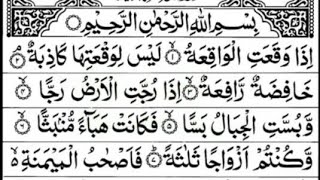 بِسْمِ اللّٰهِ الرَّحْمٰنِ الرَّحِيْمِ
اِذَا وَقَعَتِ الْوَاقِعَةُ ۙ۝١ لَيْسَ لِوَقْعَتِهَا كَاذِبَةٌ ۘ۝٢
خَافِضَةٌ رَّافِعَةٌ ۙ۝٣ اِذَا رُجَّتِ الْاَرْضُ رَجًّا ۙ۝٤
وَّبُسَّتِ الْجِبَالُ بَسًّا ۙ۝٥ فَكَانَتْ هَبَآءً مُّنْۢبَثًّا ۙ۝٦
وَّكُنْتُمْ اَزْوَاجًا ثَلٰثَةً ۝٧ فَاَصْحٰبُ الْمَيْمَنَةِ ۙ۬